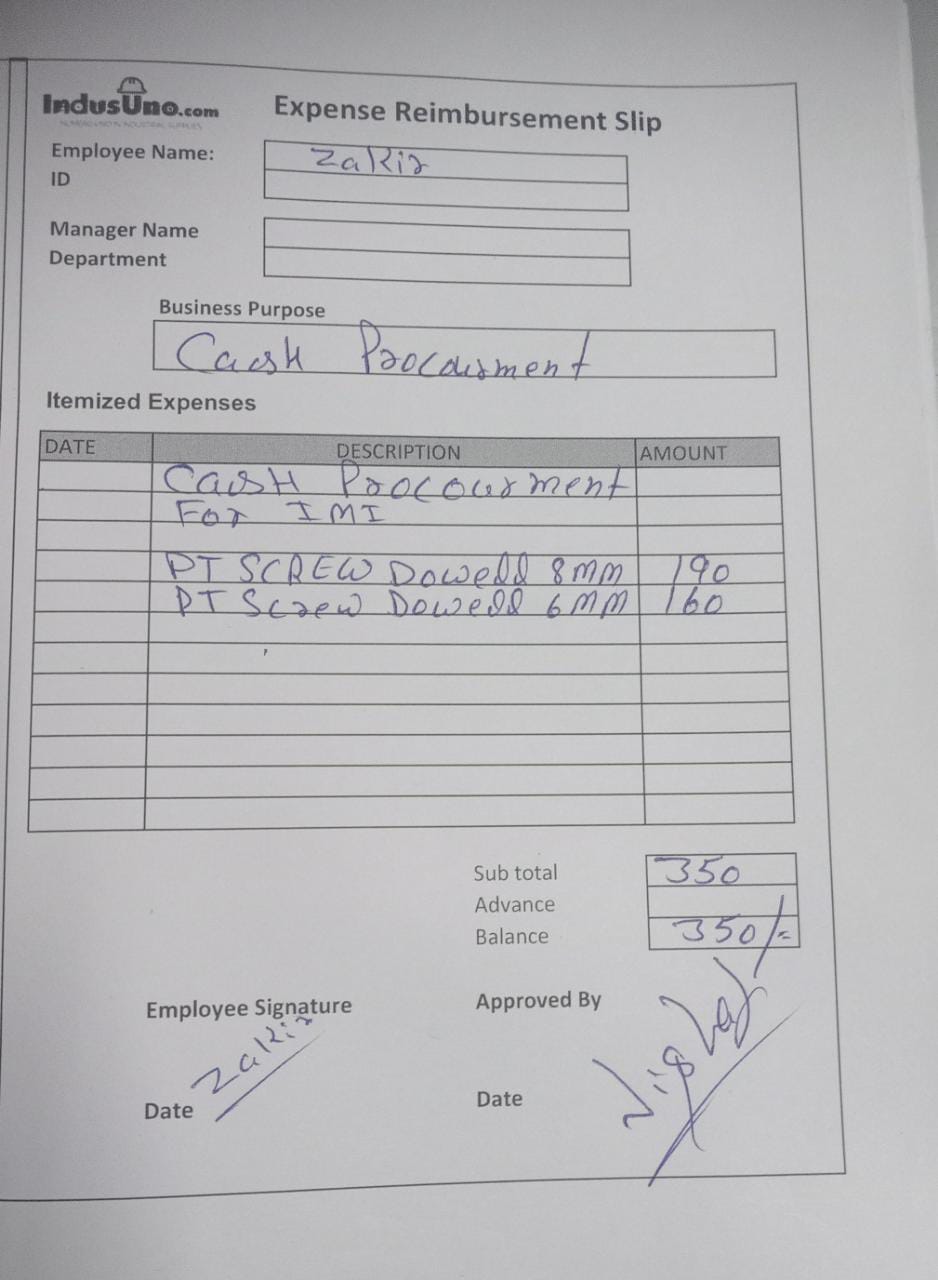 IndusUno.com
Expense Reimbursement Slip
Employee Name: Zakir
ID
Manager Name
Department
Business Purpose
Cash Procourment
Itemized Expenses
DATE DESCRIPTION AMOUNT
Cash Procourment
For IMI
PT SCREW Dowell 8MM 190
PT Screw Dowell 6MM 160
Sub total 350
Advance
Balance 350/=
Employee Signature Approved By
Zakir
Date Date